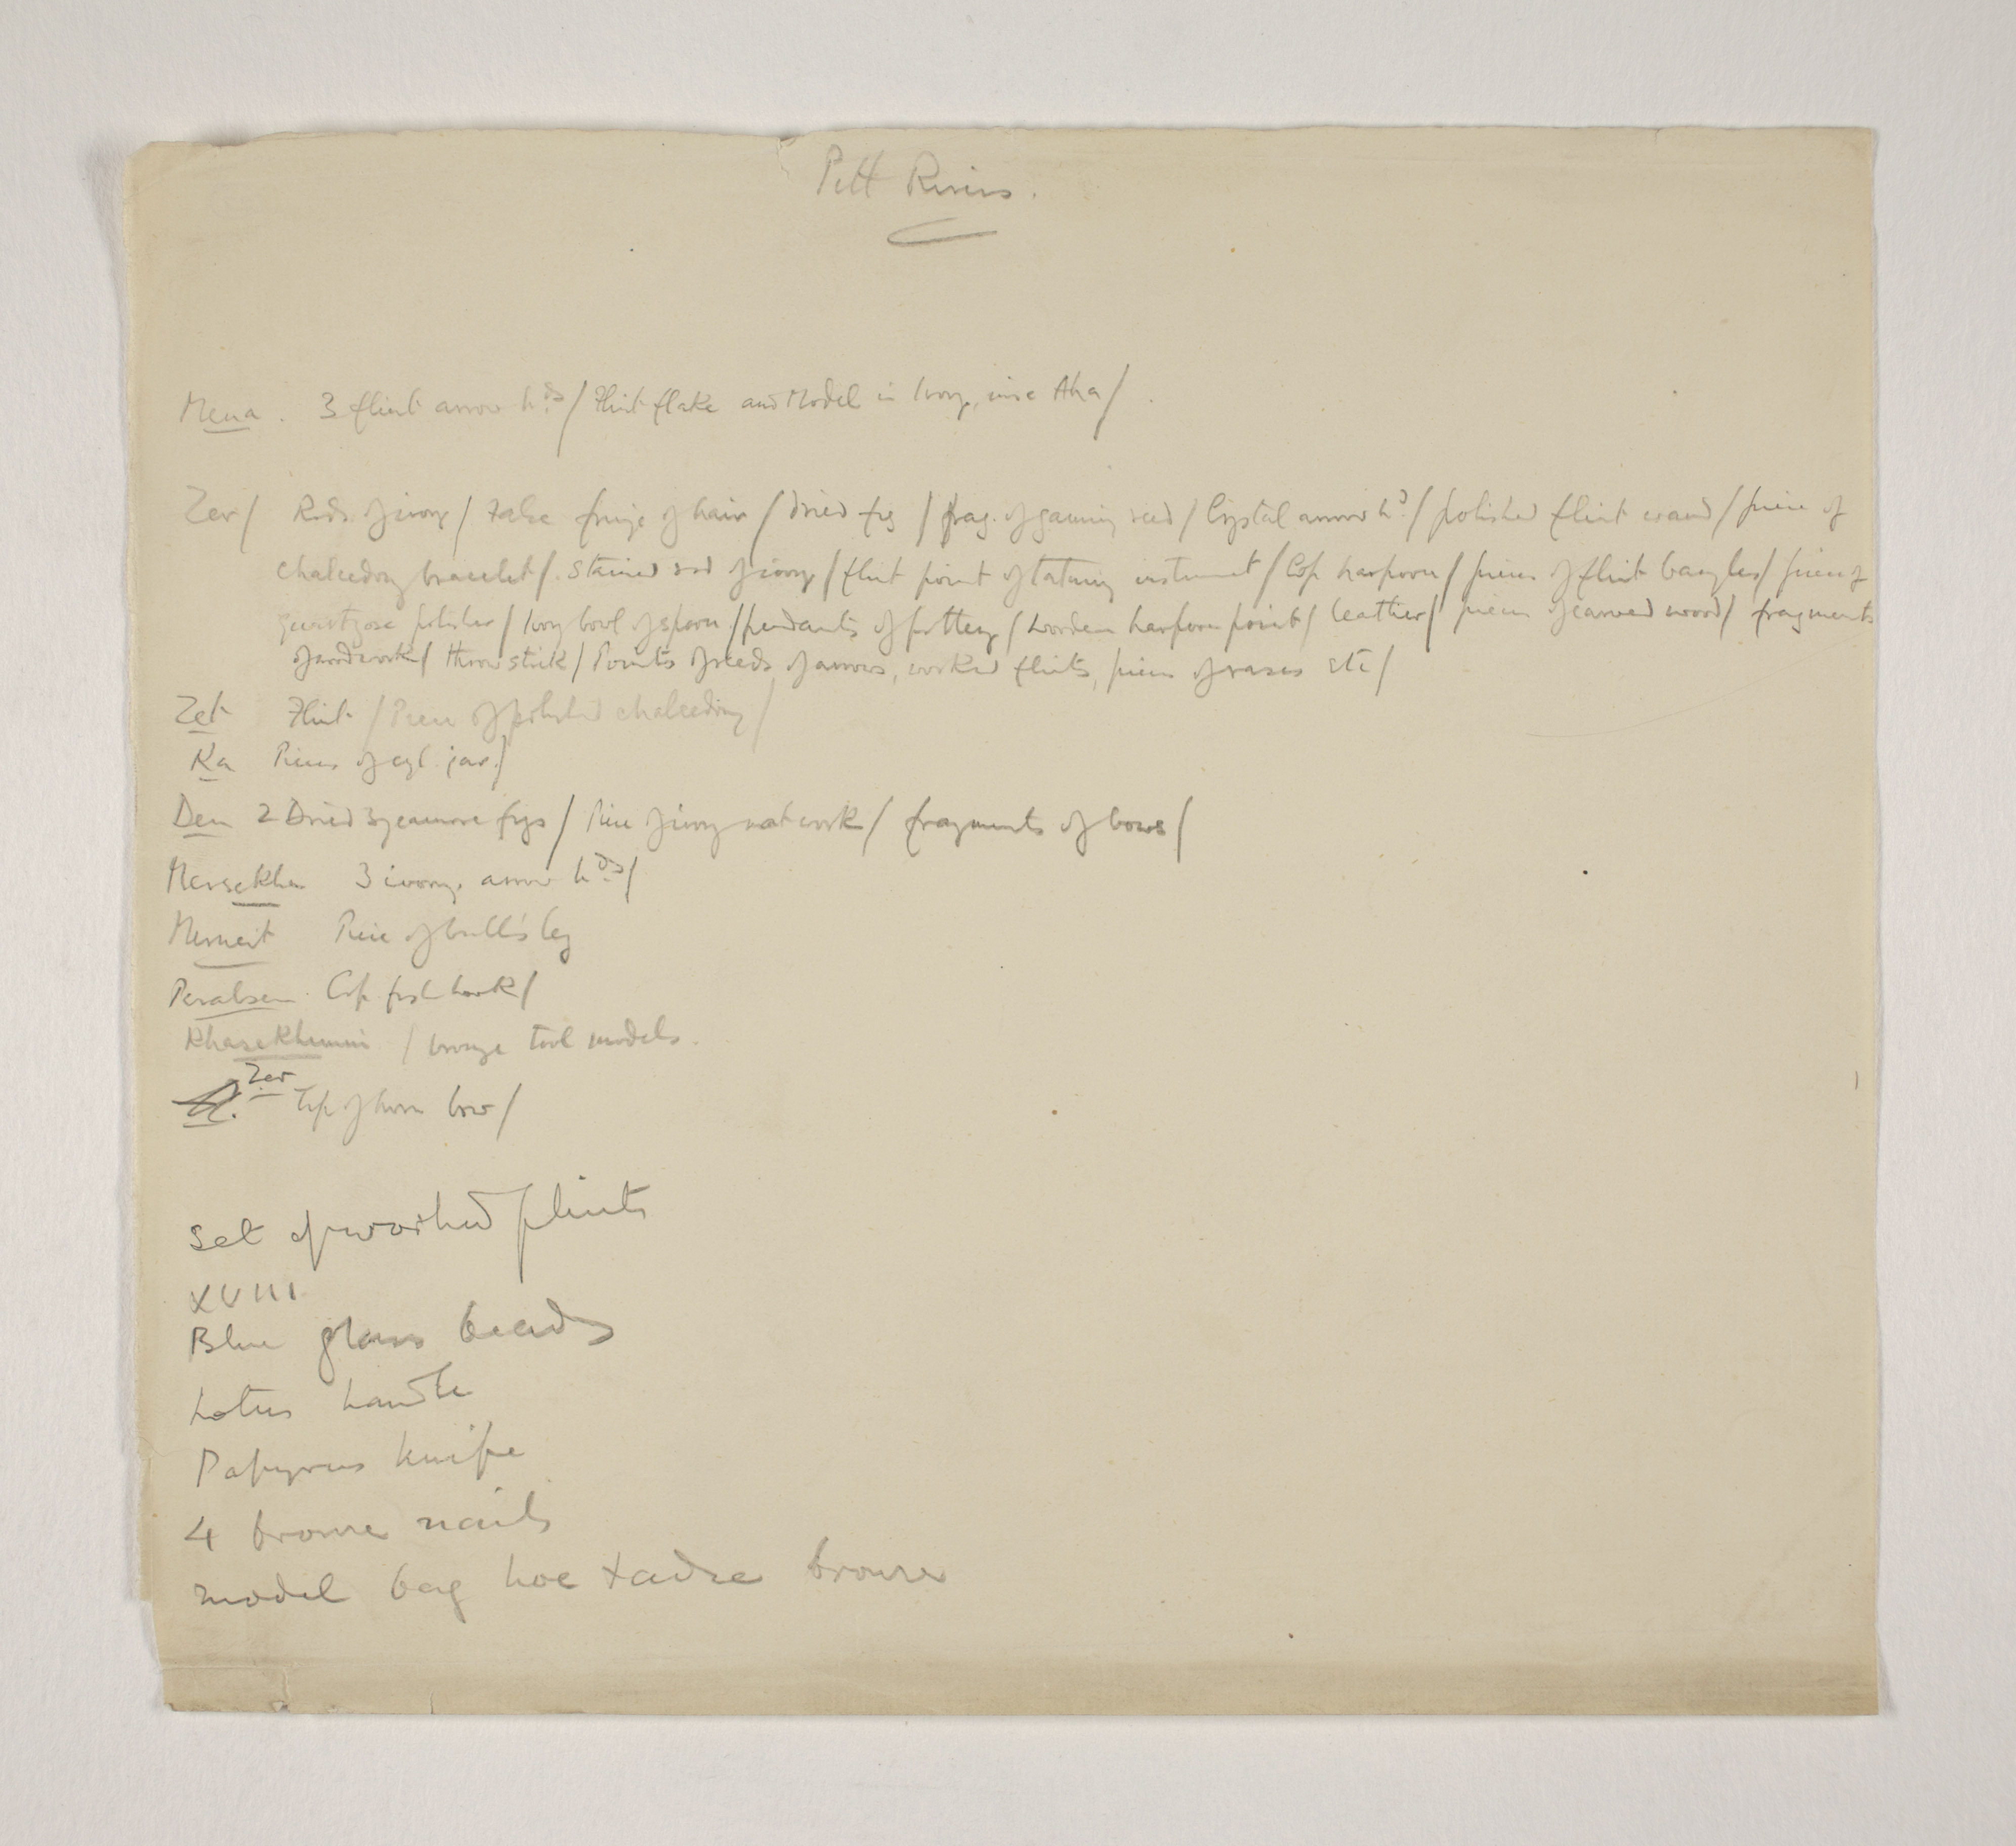 Pitt Rivers.
Mena. 3 flint arrow hds/ Flint flake and Model in Ivory, insc Aha/
Zer/ Rods of ivory/ False fringe of hair/ dried fig/ frag. of gaming reed/ Crystal arrow hd/ polished flint wand/ piece of
chalcedony bracelet/ stained rod of ivory/ flint point of tatuing instrument/ Cop harpoon/ pieces of flint bangles/ piece of
quartzose polisher/ Ivory bowl of spoon/ pendants of pottery/ wooden harpoon point/ leather/ pieces of carved wood/ fragments
of woodwork/ throw stick/ Points of reeds of arrows, worked flints, pieces of vases etc/
Zet Flint/ Piece of polished chalcedony/
Ka Pieces of cyl. jar./
Den 2 Dried Sycamore figs/ Piece of ivory matwork/ fragments of bows/
Mersekha 3 ivory arrow hds/
Merneit Piece of bull's leg
Perabsen Cop. fish hook/
Khasekhemui / bronze tool models.
Zer Tip of horn bow/
Set of worked flints
XVIII
Blue glass beads
Lotus handle
Papyrus knife
4 bronze nails
model bag hoe + adze bronze